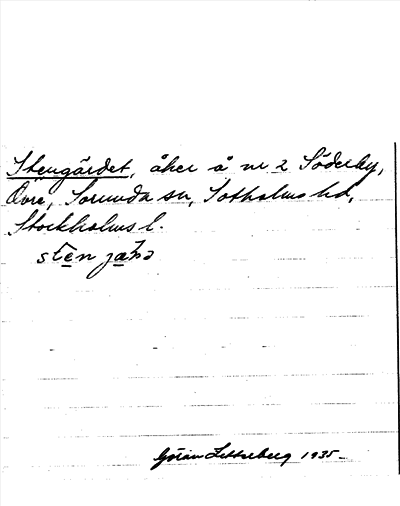 Stengärdet, åker å nr 2 Söderby,
Övre, Sorunda sn, Sotholms hd,
Stockholms l.
stēn jạ̄ɂə
Göran Zetterberg 1935